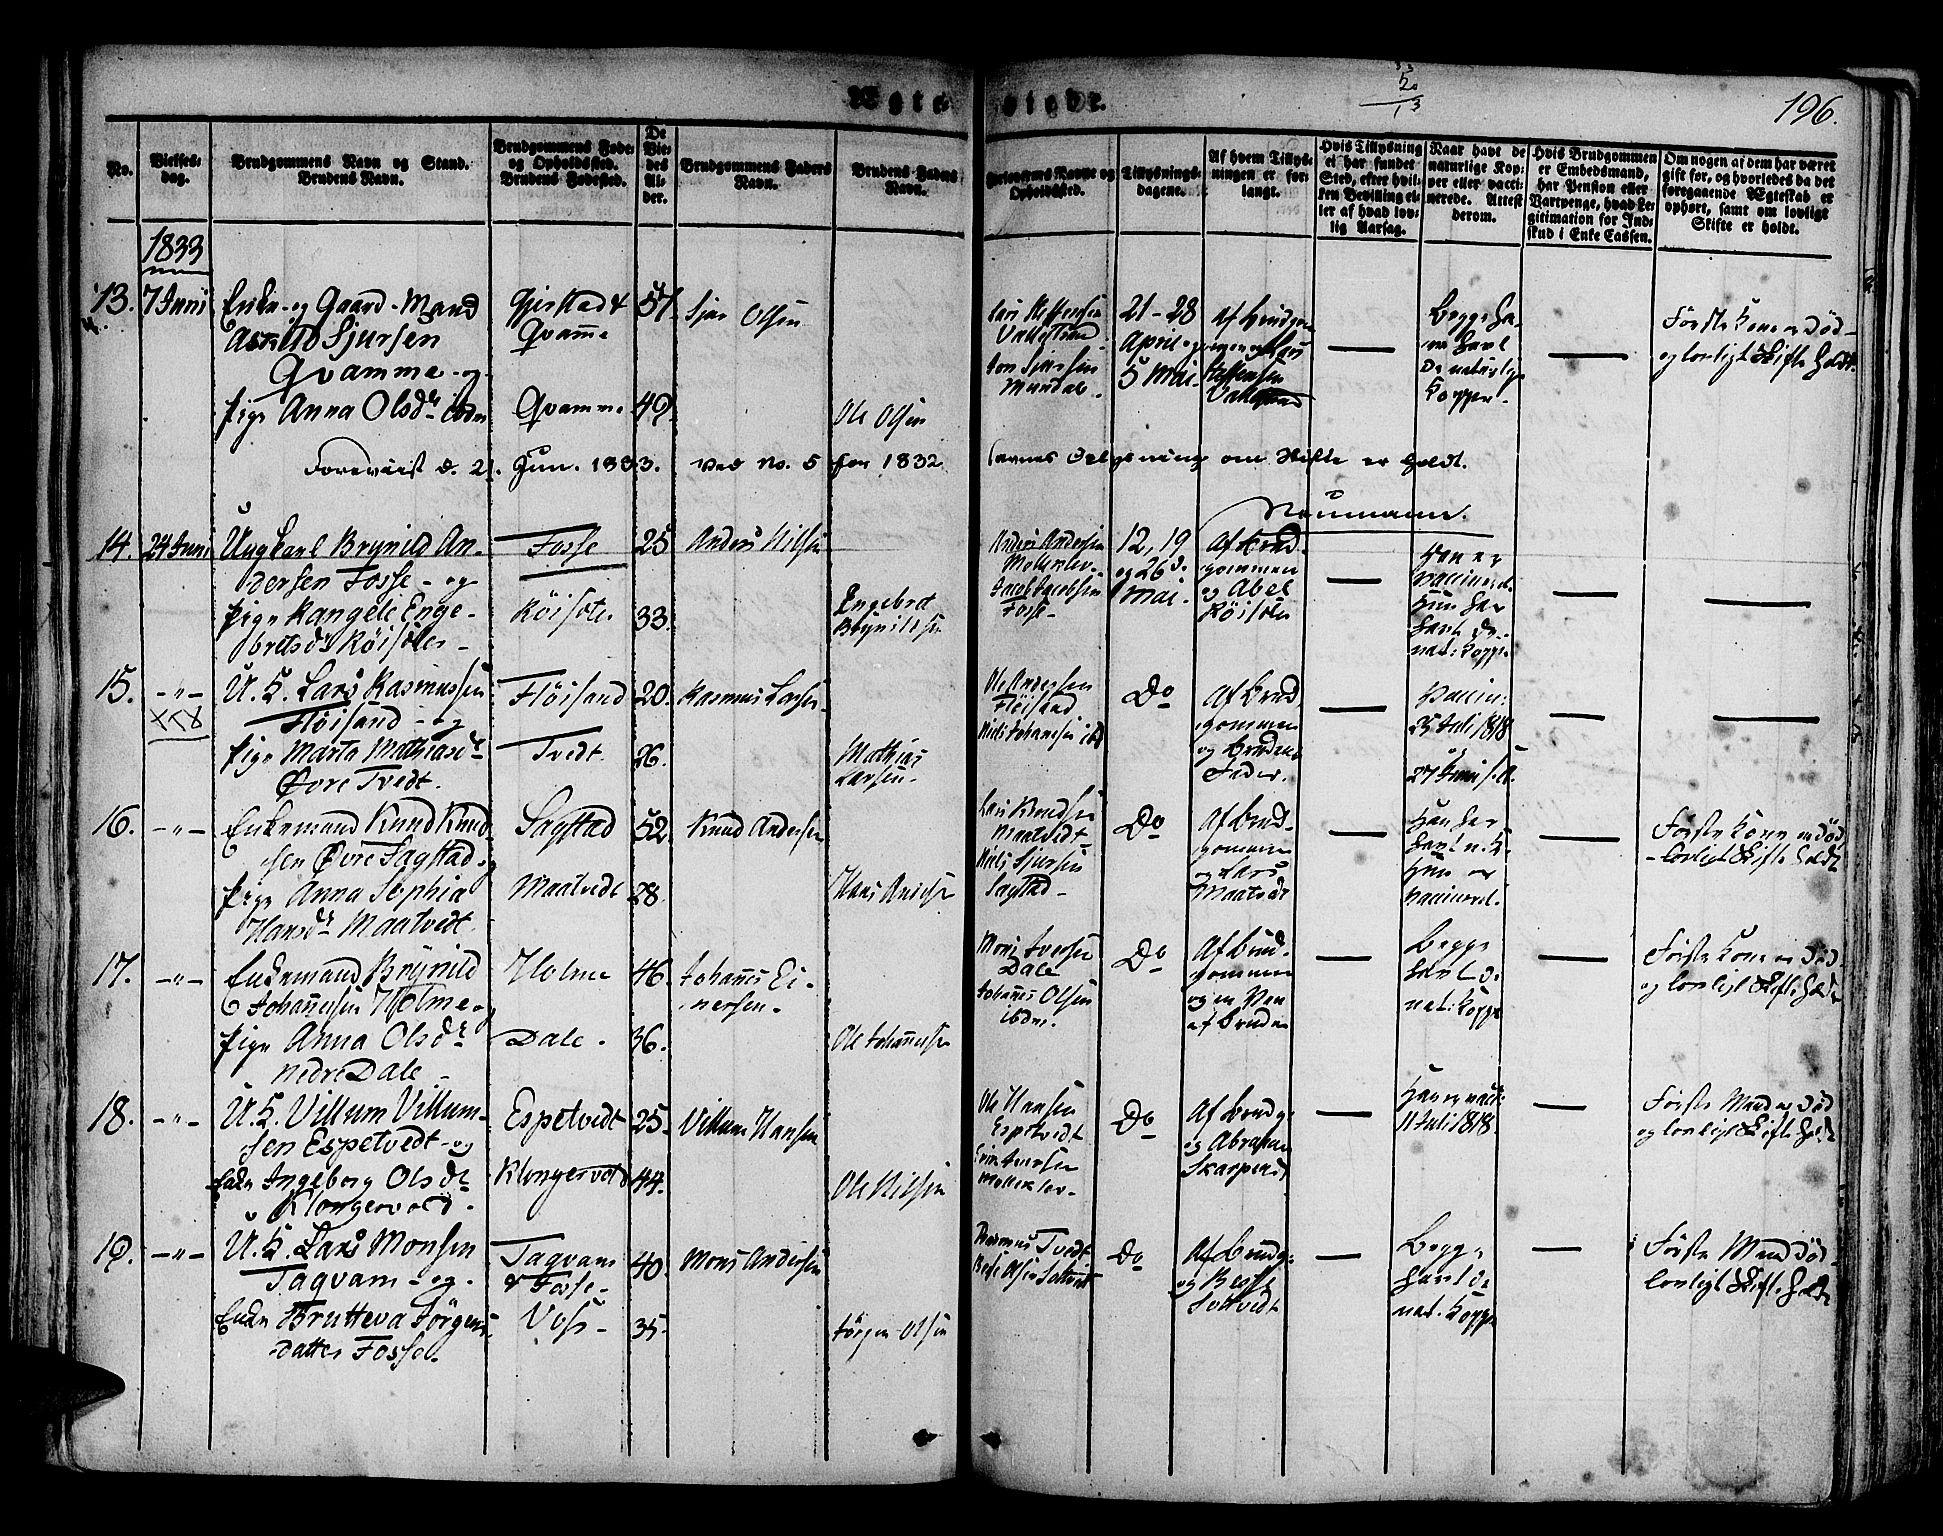 Ægte viede.
196.
No.
Vielses-
dag.
Brudgommens Navn og Stand.
Brudens Navn.
Brudgommens Føde-
og Opholdssted.
Brudens Fødested.
De
Vie-
des
Al-
der.
Brudgommens Faders
Navn.
Brudens Faders
Navn.
Forlovernes Navne og
Opholdssted.
Tillysnings-
dagene.
Af hvem Tillys-
ningen er for-
langt.
Hvis Tillysning
ei har fundet
Sted, efter hvil-
ken Bevilling el-
ler af hvad lov-
lig Aarsag.
Naar havt de
naturlige Kop-
per eller vacci-
nerede. Attest
derom.
Hvis Brudgommen
er Embedsmand,
har Pension eller
Vartpenge, hvad Le-
gitimation for Ind-
skud i Enke Cassen.
Om nogen af dem har været
gift før, og hvorledes da det
foregaaende Ægteskab er
ophørt, samt om lovligt
Skifte er holdt.
1833
13. 7 Juni
Enke- og Gaard-Mand
Sjursen
Qvamme - og
Pige Anna Olsdr ibdm
Gjerstad &
Qvamme
Qvamme
57
49
Sjur Olsen
Ole Olsen
Lars Steffensen
Jon Sjursen
Mundal.
21-28
April og
5 Mai.
Af Brudgom-
men og Lars
Steffensen
Begge ha-
ve havt
de naturlige
Kopper.
Første Kone er død
og lovligt Skifte holdt.
Foreviist d. 21. Jun. 1833. ved No. 5 for 1832
Oplysning om Skifte er holdt.
Neumann.
14. 24 Juni
Ungkarl Brynild An-
dersen Fosse - og
Pige Rangele Enge-
bretsdr Röisöter -
Fosse
Röisöter
25
33.
Anders Nilsen
Engebret
Brynildsen
Anders Andersen
Möllerlev-
Jacob Jacobsen
Fosse-
12, 19
og 26 d.
Mai.
Af Brud-
gommen
og Abel
Röisöter
Han er
vaccineret.
Hun har
havt de
nat: Kopper
15. -"-
U. K. Lars Rasmussen
Flöisand - og
Pige Marta Mathiasdr
Øvre Tvedt.
Flöisand
Tvedt.
20.
26.
Rasmus Larsen
Mathias
Larsen.
Ole Andersen
Flöisand
Niels Johannesen ibd
Do
Af Brud
gommen
og Brudens
Fader.
Vaccin:
25 Juli 1818
27 Juni s. A.
16. -"-
Enkemand Knud Knud-
sen Øvre Sagstad og
Pige Anna Sophia
Hansdr Maatvedt.
Sagstad
Maatvedt
52.
28.
Knud Andersen
Lars Knudsen
Maatvedt
Niels Sjursen
Sagstad -
Do
Af Brud-
gommen
og Lars
Maatvedt
Han har
havt n. K.
Hun er
vaccineret.
Første Kone er død
- lovligt Skifte holdt
17. -"-
Enkemand Brynild
Johannessen Holme og
Pige Anna Olsdr
nedre Dale -
Holme
Dale.
46.
36.
Johannes Ei-
nersen.
Ole Johannessen
Mons Iversen
Dale
Johannes Olsen
ibdm.
Do
Af Brud-
gommen
og en Ven
af Bruden
Begge
havt de
nat: Kopper
Første Kone er død
og lovligt Skifte holdt
18. -"-
U. K. Villum Villum-
sen Espetvedt - og
Enke Ingeborg Olsdr
Klongervold.
Espetvedt
Klongervold
25.
44.
Villum Hansen
Ole Nilsen
Ole Hansen
Espetvedt
Do
Af Brudg:
og Abraham
Han er vacc:
11 Juli 1818.
Første Mand er død
og lovligt Skifte holdt
19. -"-
U. K. Lars Monsen
Tagvam - og
Enke Brutteva Jörgens-
datter Fosse.
Tagvam
& Fosse-
Voss -
40.
35.
Mons Andersen
Jörgen Olsen
Tvedt
Do
Af Brudg:
Begge
havt de
nat: Kopper
Første Mand død
lovligt Skifte holdt